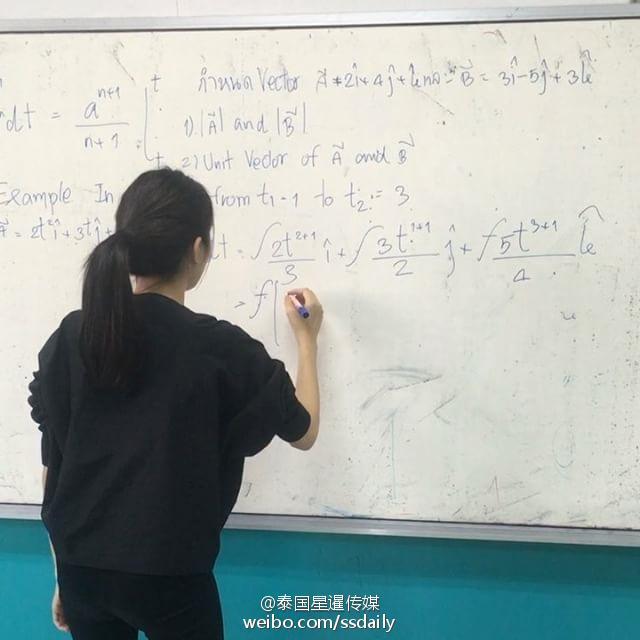 กำหนด Vector A = 2î + 4ĵ + k̂ และ B⃗ = 3î - 5ĵ + 3k̂
dt = a^(n+1) / (n+1) | t t
1) |A⃗| and |B⃗|
2) Unit Vector of A⃗ and B⃗
Example In from t₁ = 1 to t₂ = 3
a⃗ = 2t²î + 3tĵ +
dt = ∫ 2t^(2+1)/3 î + ∫ 3t^(1+1)/2 ĵ + ∫ 5t^(3+1)/4 k̂
= f |
@泰国星暹传媒
weibo.com/ssdaily